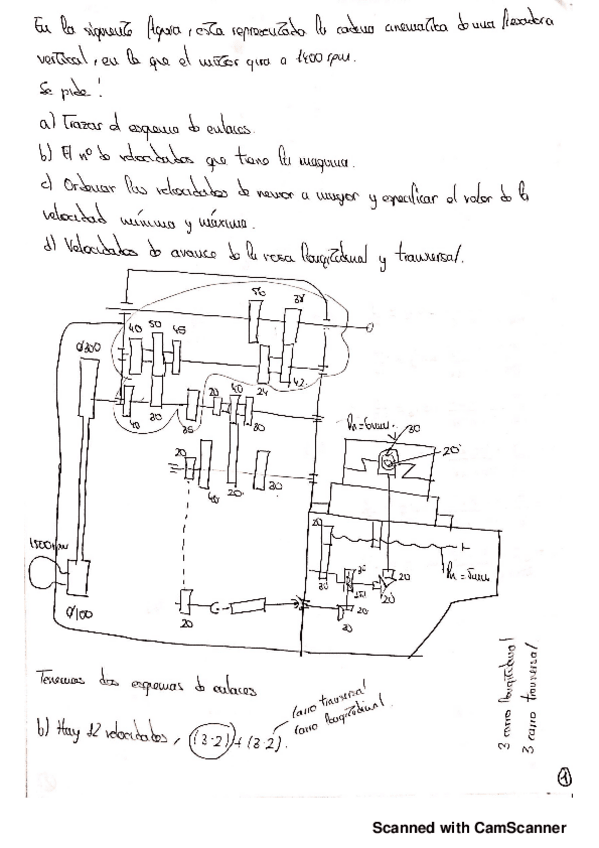 En la siguiente figura, esta representada la cadena cinematica de una fresadora
vertical, en la que el motor gira a 1400 rpm.
Se pide:
a) Trazar el esquema de enlaces.
b) El nº de velocidades que tiene la maquina.
c) Ordenar las velocidades de menor a mayor y especificar el valor de la
velocidad mínima y máxima.
d) Velocidades de avance de la mesa longitudinal y transversal.
56
38
40 50 45
Ø300
24
42
40
30
35
20 40
30
Ph=6mm
30
20
20
20
30
20
1500 rpm
Ø100
20
30
20
20
20
30
Ph=5mm
Tenemos dos esquemas de enlaces
b) Hay 12 velocidades, (3·2)+(3·2).
carro transversal
carro longitudinal.
3 carro longitudinal
3 carro transversal
1
Scanned with CamScanner